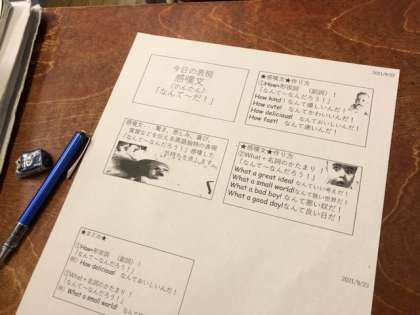 2021/9/23
今日の表現
感嘆文
(かんたん)
「なんて〜だ！」
★感嘆文★作り方
①How+形容詞 (副詞) ！
「なんて〜なんだろう！」
How kind! なんて優しいんだ！
How cute! なんてかわいいんだ！
How delicious! なんておいしいんだ！
How fast! なんて速いんだ！
感嘆文… 驚き、悲しみ、喜び、
賞賛などを伝える英語独特の表現
「なんて〜なんだろう！」感嘆した
気持ちを表します。
★感嘆文★作り方
②What+名詞のかたまり！
「なんて〜なんだろう！」
What a great idea! なんていい考えだ！
What a small world! なんて狭い世界だ！
What a bad boy! なんて悪い奴だ！
What a good day! なんて良い日だ！
★まとめ★
①How+形容詞 (副詞) ！
「なんて〜なんだろう！」
例) How delicious! なんておいしいんだ！
②What+名詞のかたまり！
「なんて〜なんだろう！」
例) What a small world!
2021/9/23